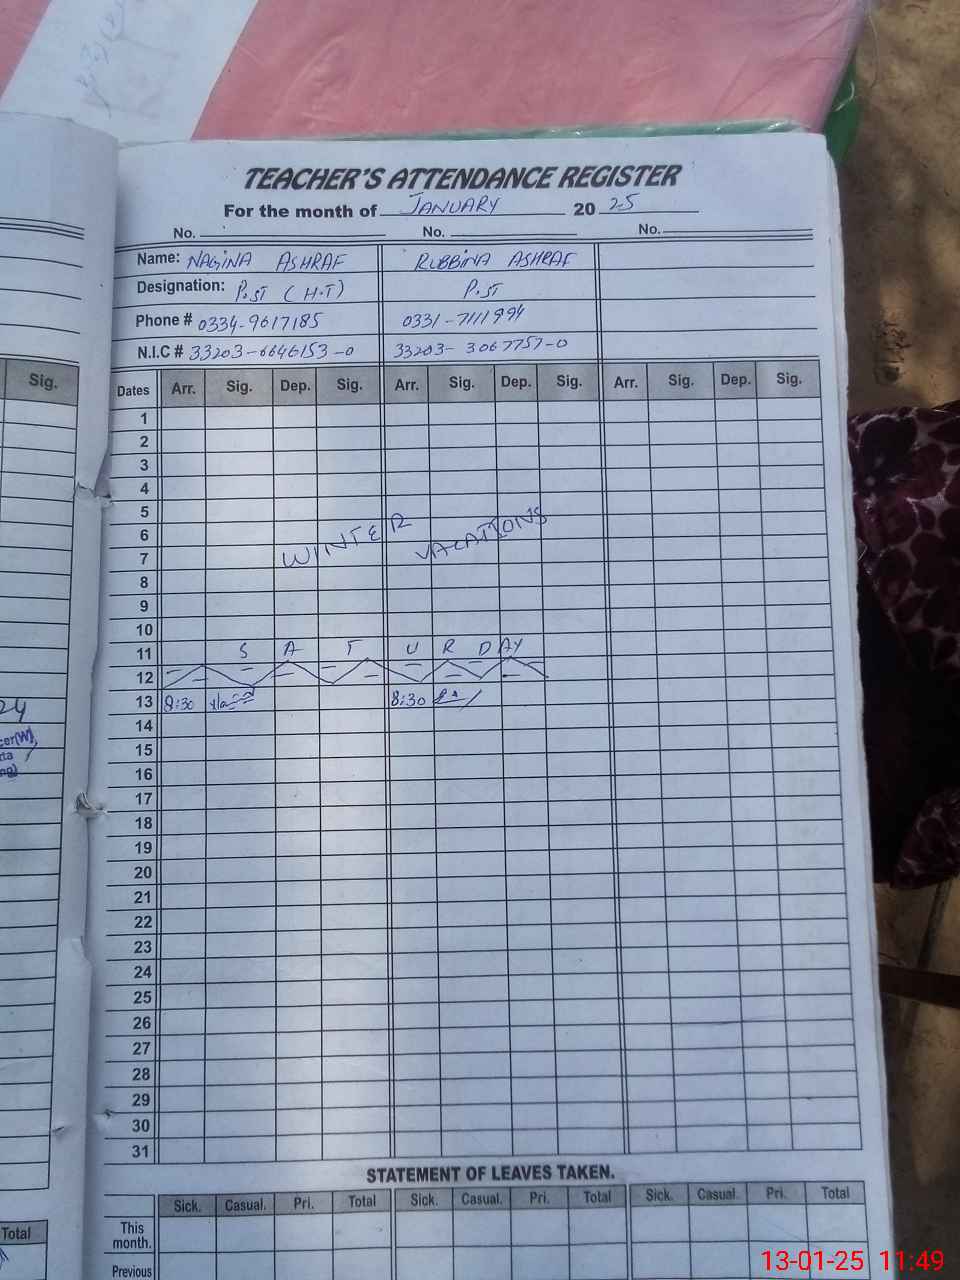 TEACHER'S ATTENDANCE REGISTER
For the month of JANUARY 20 25
No. No. No.
Name: NAGINA ASHRAF RUBBINA ASHRAF
Designation: P.ST (H.T) P.ST
Phone # 0334-9617185 0331-7111994
N.I.C # 33203-6646153-0 33203-3067757-0
Sig. Dates Arr. Sig. Dep. Sig. Arr. Sig. Dep. Sig. Arr. Sig. Dep. Sig.
1
2
3
4
5
6 WINTER VACATIONS
7
8
9
10
11 S A T U R D A Y
12
13 8:30 8:30
14
15
16
17
18
19
20
21
22
23
24
25
26
27
28
29
30
31
STATEMENT OF LEAVES TAKEN.
Sick. Casual. Pri. Total Sick. Casual. Pri. Total Sick. Casual. Pri. Total
This month.
Total Previous
13-01-25 11:49